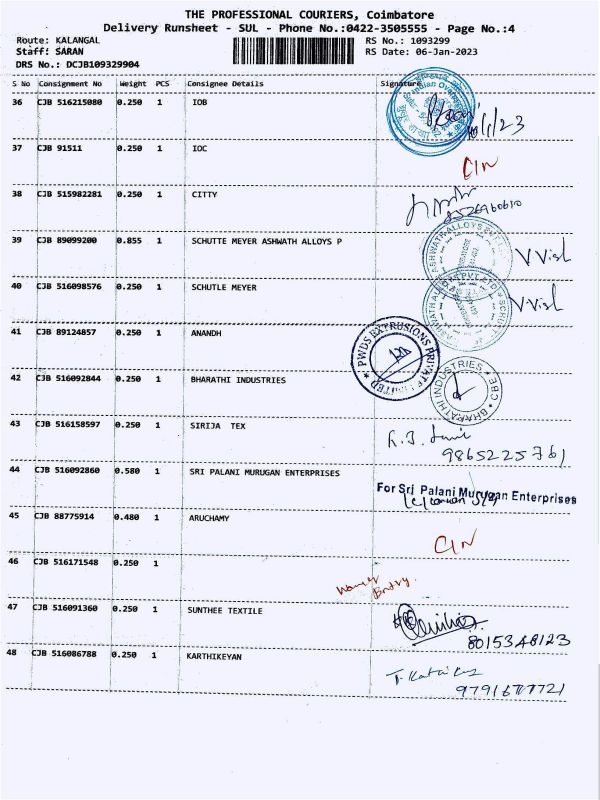 THE PROFESSIONAL COURIERS, Coimbatore
Delivery Runsheet - SUL - Phone No.:0422-3505555 - Page No.:4
Route: KALANGAL RS No.: 1093299
Staff: SARAN RS Date: 06-Jan-2023
DRS No.: DCJB109329904
S No Consignment No Weight PCS Consignee Details Signature
36 CJB 516215080 0.250 1 IOB
37 CJB 91511 0.250 1 IOC
CIN
38 CJB 515982281 0.250 1 CITTY
39 CJB 89099200 0.855 1 SCHUTTE MEYER ASHWATH ALLOYS P
40 CJB 516098576 0.250 1 SCHUTLE MEYER
41 CJB 89124857 0.250 1 ANANDH
PWDS EXTRUSIONS PRIVATE LIMITED
42 CJB 516092844 0.250 1 BHARATHI INDUSTRIES
BHARATHI INDUSTRIES CBE
43 CJB 516158597 0.250 1 SIRIJA TEX
9865225761
44 CJB 516092860 0.580 1 SRI PALANI MURUGAN ENTERPRISES
For Sri Palani Murugan Enterprises
45 CJB 88775914 0.480 1 ARUCHAMY
CIN
46 CJB 516171548 0.250 1
47 CJB 516091360 0.250 1 SUNTHEE TEXTILE
8015348123
48 CJB 516086788 0.250 1 KARTHIKEYAN
9791677721